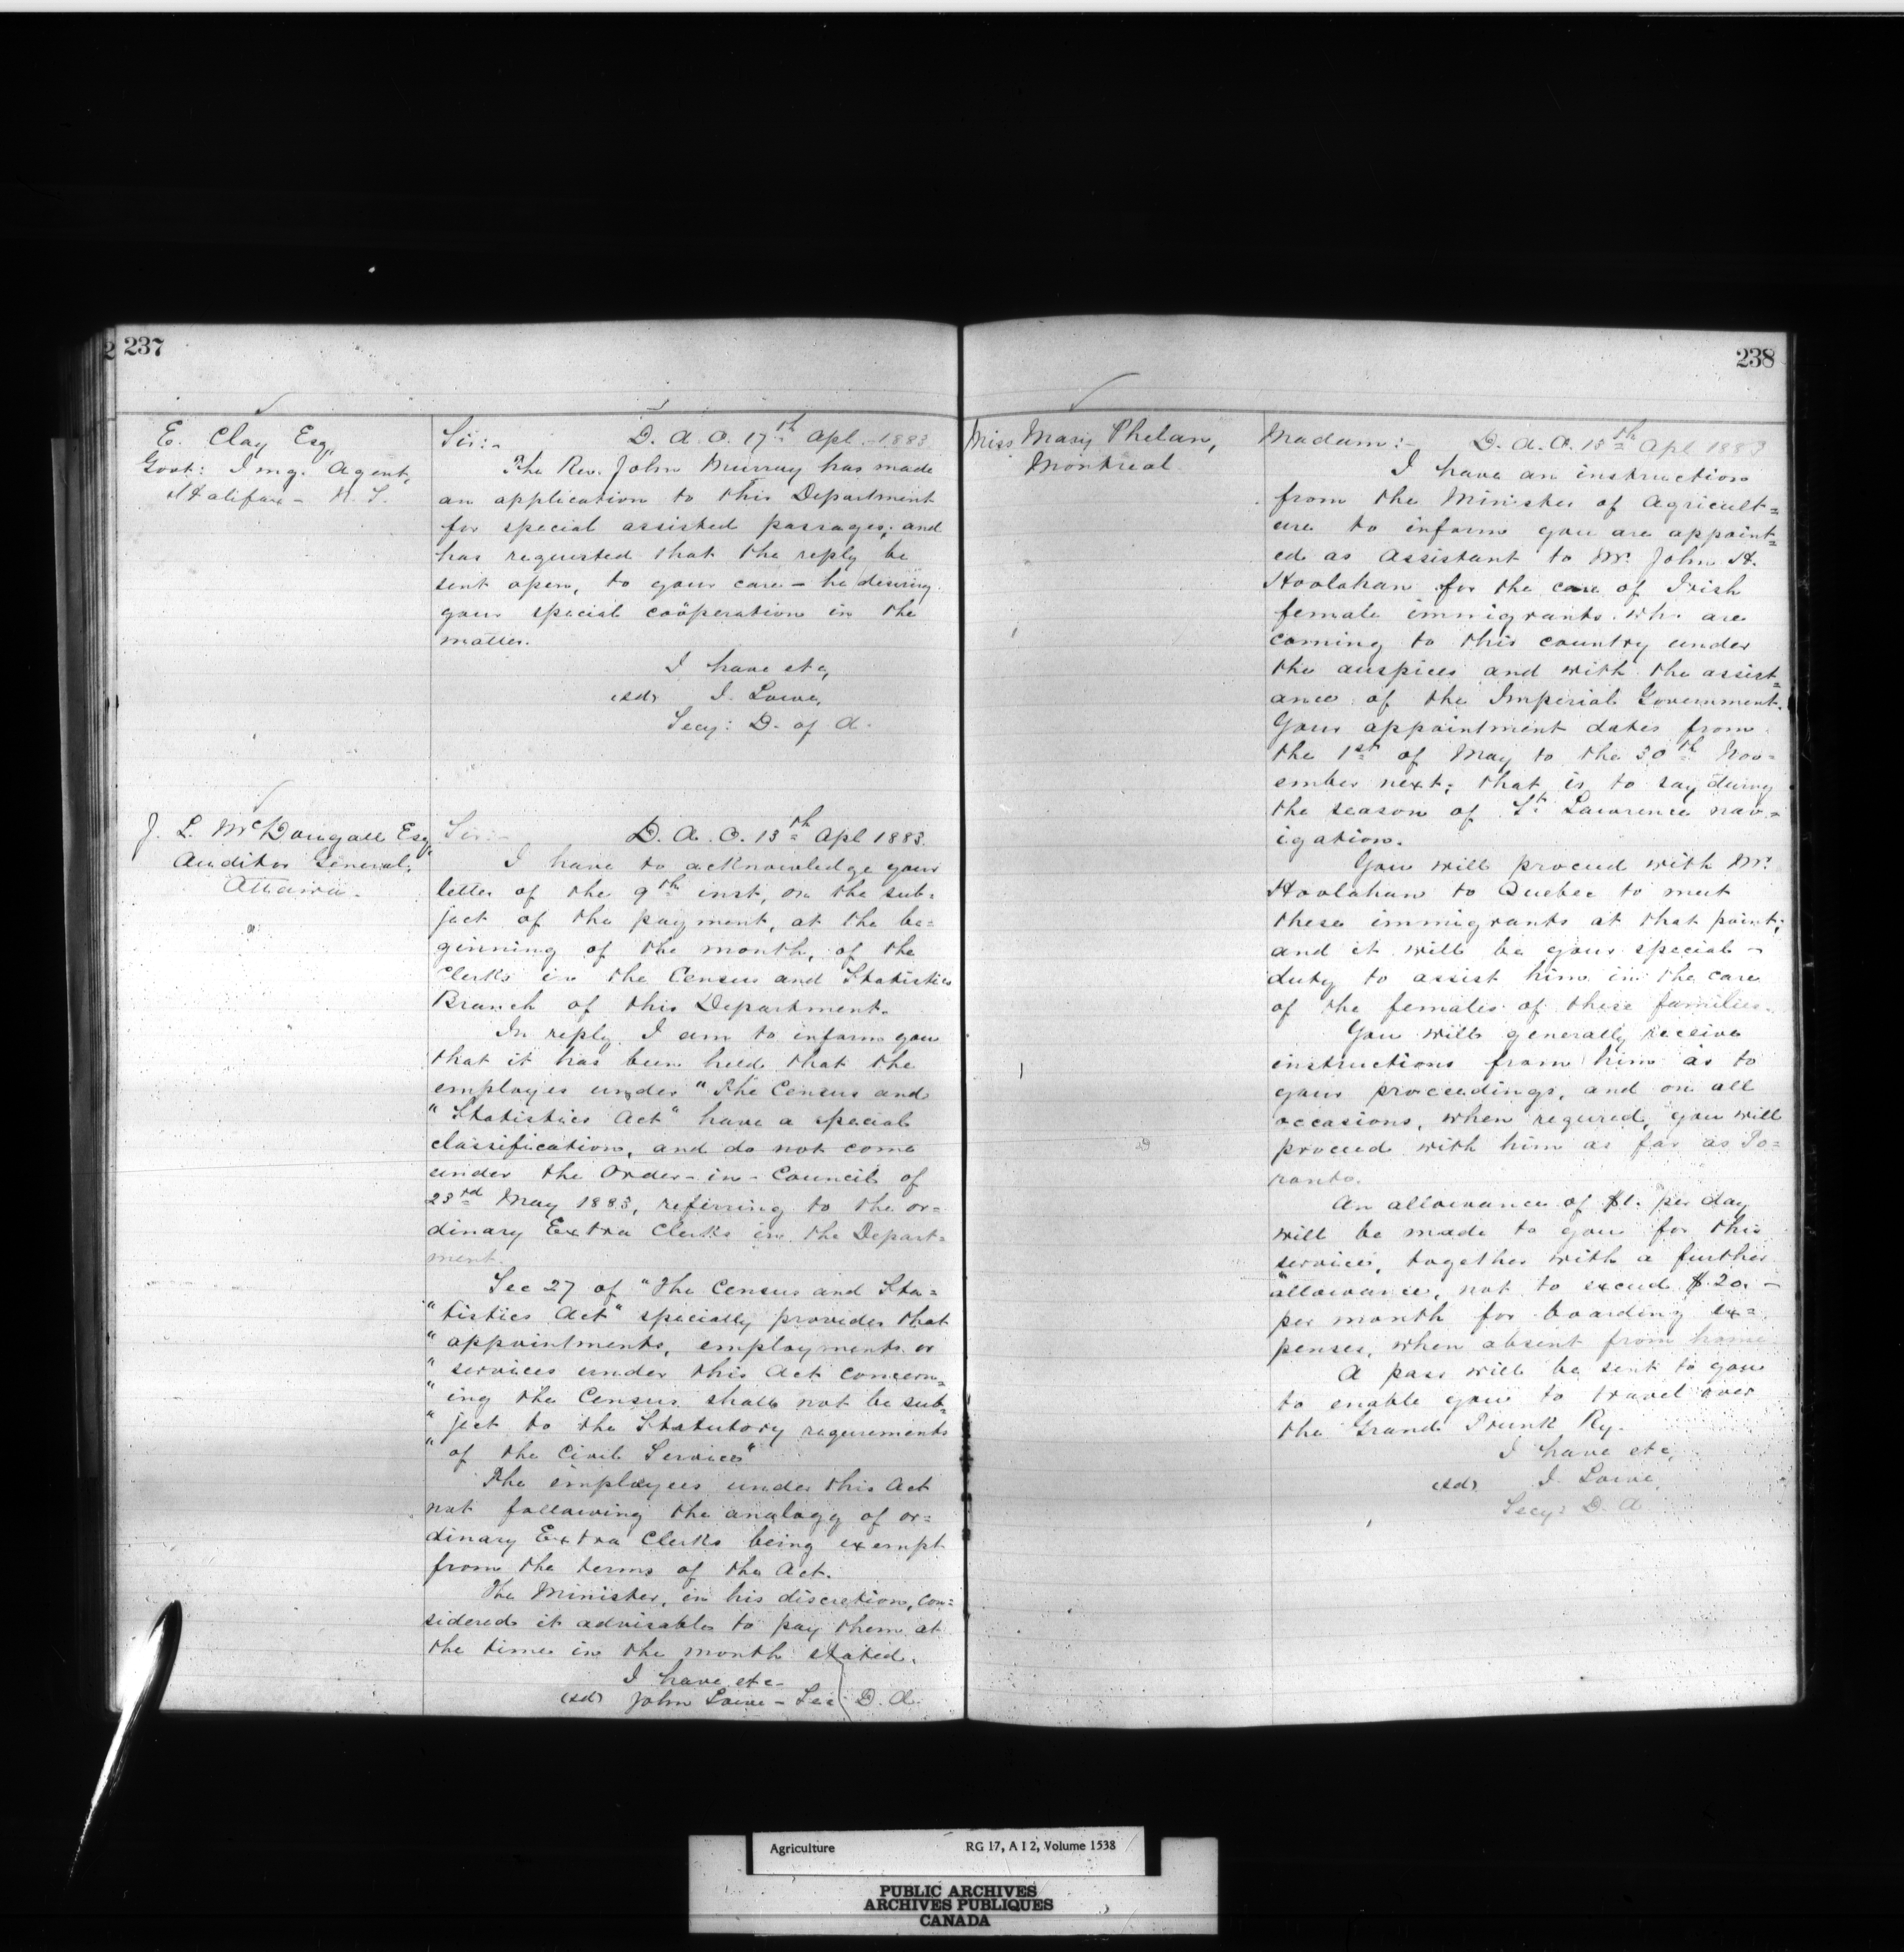 237
E. Clay Esq,
Govt: Img. Agent,
Halifax - N. S.
Sir:- D. A. O. 17th Apl. 1883
The Rev. John Murray has made
an application to this Department
for special assisted passages; and
has requested that the reply be
sent open, to your care - he desiring
your special coöperation in the
matter.
I have etc,
(sd) J. Lowe,
Secy: D. of A.
J. L. McDougall Esq
Auditor General,
Ottawa.
Sir:- D. A. O. 13th Apl 1883.
I have to acknowledge your
letter of the 9th inst, on the sub=
ject of the payment, at the be=
ginning of the month, of the
Clerks in the Census and Statistics
Branch of this Department.
In reply I am to inform you
that it has been held that the
employes under "The Census and
"Statistics Act" have a special
classification, and do not come
under the Order-in-Council of
23rd May 1883, referring to the or=
dinary Extra Clerks in the Depart=
ment.
Sec 27 of "The Census and Sta=
"tistics Act" specially provides that
"appointments, employments or
"services under this Act concern=
"ing the Census shall not be sub=
"ject to the Statutory requrements
"of the Civil Service"
The employees under this Act
not following the analogy of or=
dinary Extra Clerks being exempt
from the terms of the Act.
The Minister, in his discretion, con=
sidered it advisable to pay them at
the time in the month stated.
I have etc-
(sd) John Lowe - Sec D. A.
238
Miss Mary Phelan,
Montreal
Madam:- D. A. O. 13th Apl 1883
I have an instruction
from the Minister of Agricult=
ure to inform you are appoint=
ed as Assistant to Mr. John H.
Hoolahan for the care of Irish
female immigrants who are
coming to this country under
the auspices and with the assist=
ance of the Imperial Government.
Your appointment dates from
the 1st of May to the 30th Nov=
ember next; that is to say during
the season of St. Lawrence nav=
igation.
You will proceed with Mr.
Hoolahan to Quebec to meet
these immigrants at that point;
and it will be your special -
duty to assist him in the care
of the females of these families.
You will generally receive
instructions from him as to
your proceedings, and on all
occasions, when requred, you will
proceed with him as far as To=
ronto.
An allowance of $1. per day
will be made to you for this
service, together with a further
allowance, not to exceed $20. -
per month for boarding ex=
penses, when absent from home
A pass will be sent to you
to enable you to travel over
the Grand Trunk Ry.
I have etc,
(sd) J. Lowe,
Secy: D. A
Agriculture RG 17, A I 2, Volume 1538
PUBLIC ARCHIVES
ARCHIVES PUBLIQUES
CANADA